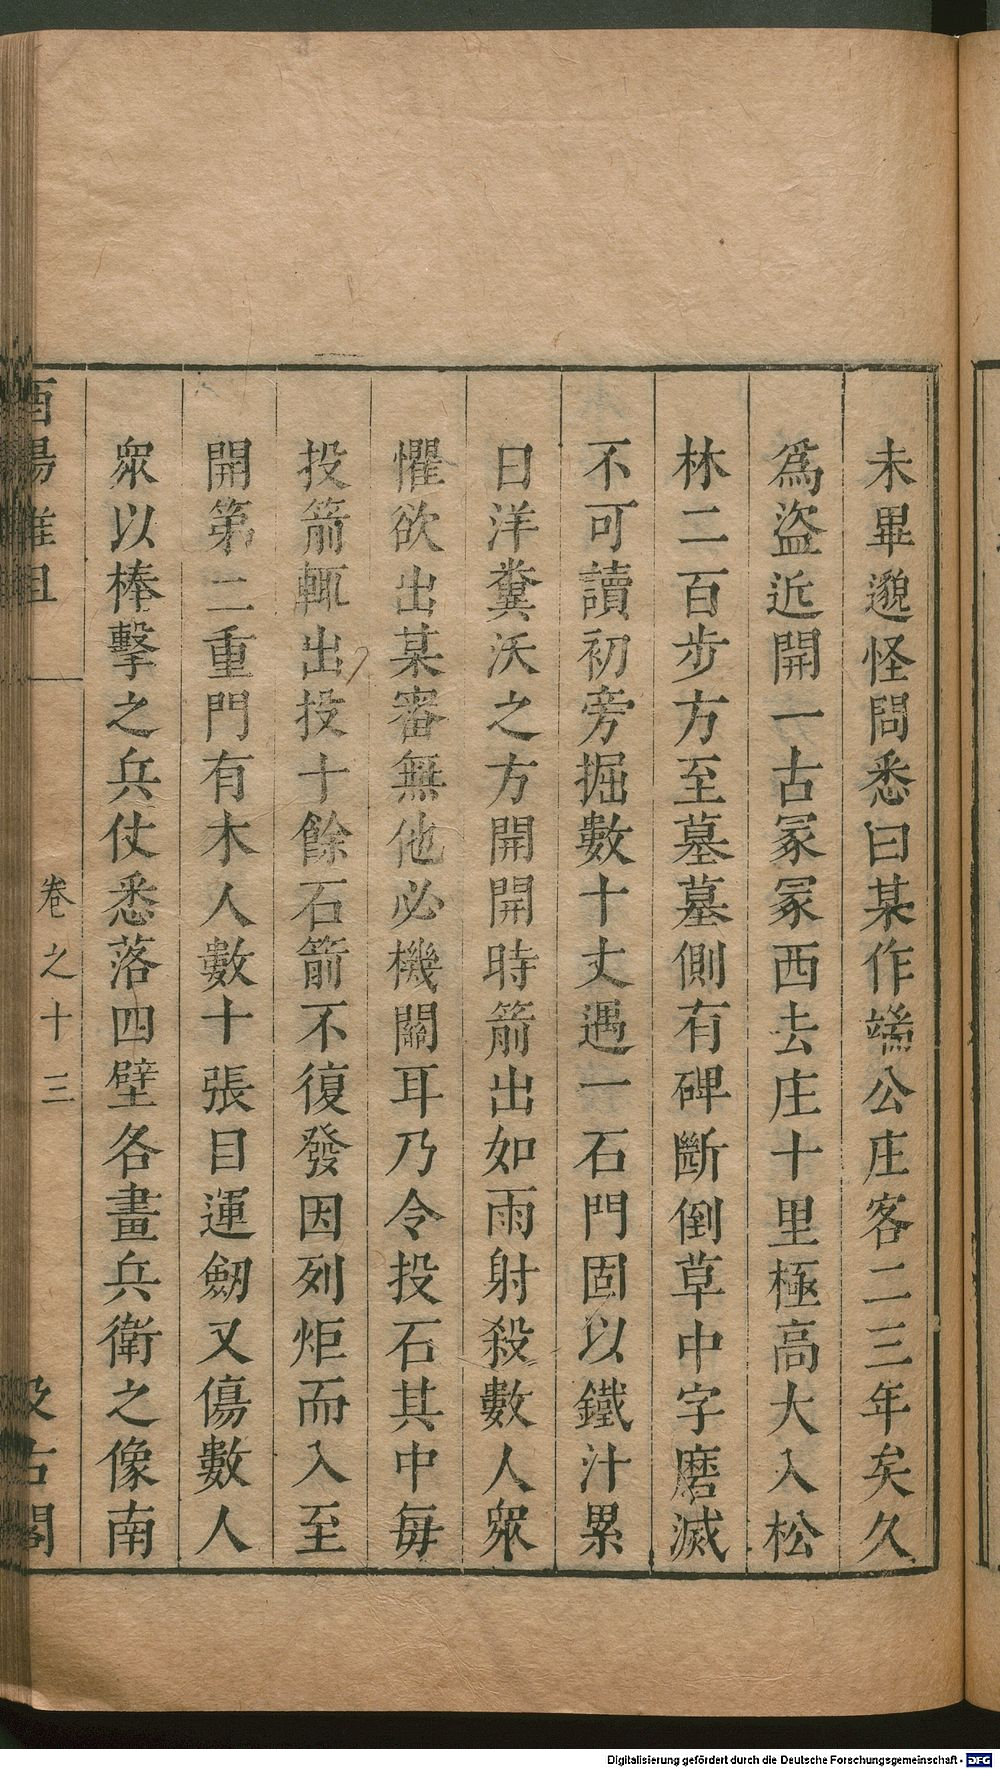 未畢邈怪問悉曰某作端公庄客二三年矣久
爲盜近開一古冢冢西去庄十里極高大入松
林二百步方至墓墓側有碑斷倒草中字磨滅
不可讀初旁掘數十丈遇一石門固以鐵汁累
日洋糞沃之方開開時箭出如雨射殺數人衆
懼欲出某審無他必機關耳乃令投石其中毎
投箭輒出投十餘石箭不復發因列炬而入至
開第二重門有木人數十張目運劒又傷數人
衆以棒擊之兵仗悉落四壁各畫兵衛之像南
酉陽雜俎
卷之十三
汲古閣
Digitalisierung gefördert durch die Deutsche Forschungsgemeinschaft - DFG